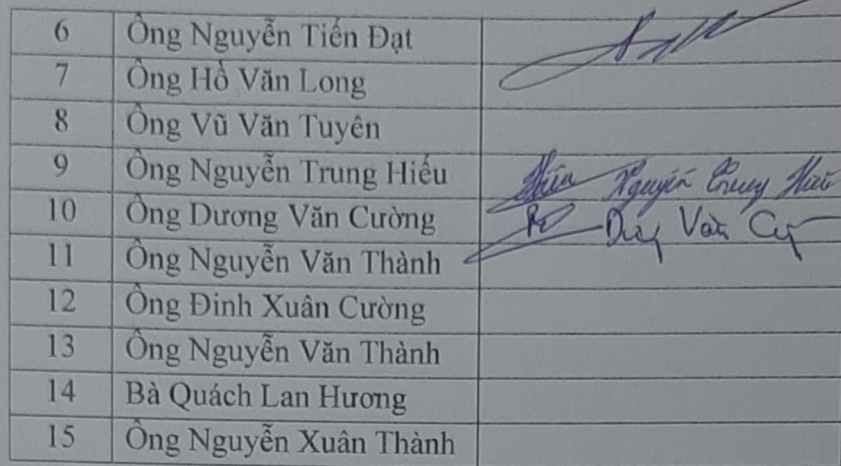 6 Ông Nguyễn Tiến Đạt
7 Ông Hồ Văn Long
8 Ông Vũ Văn Tuyên
9 Ông Nguyễn Trung Hiếu Hiếu Nguyễn Trung Hiếu
10 Ông Dương Văn Cường Văn
11 Ông Nguyễn Văn Thành
12 Ông Đinh Xuân Cường
13 Ông Nguyễn Văn Thành
14 Bà Quách Lan Hương
15 Ông Nguyễn Xuân Thành